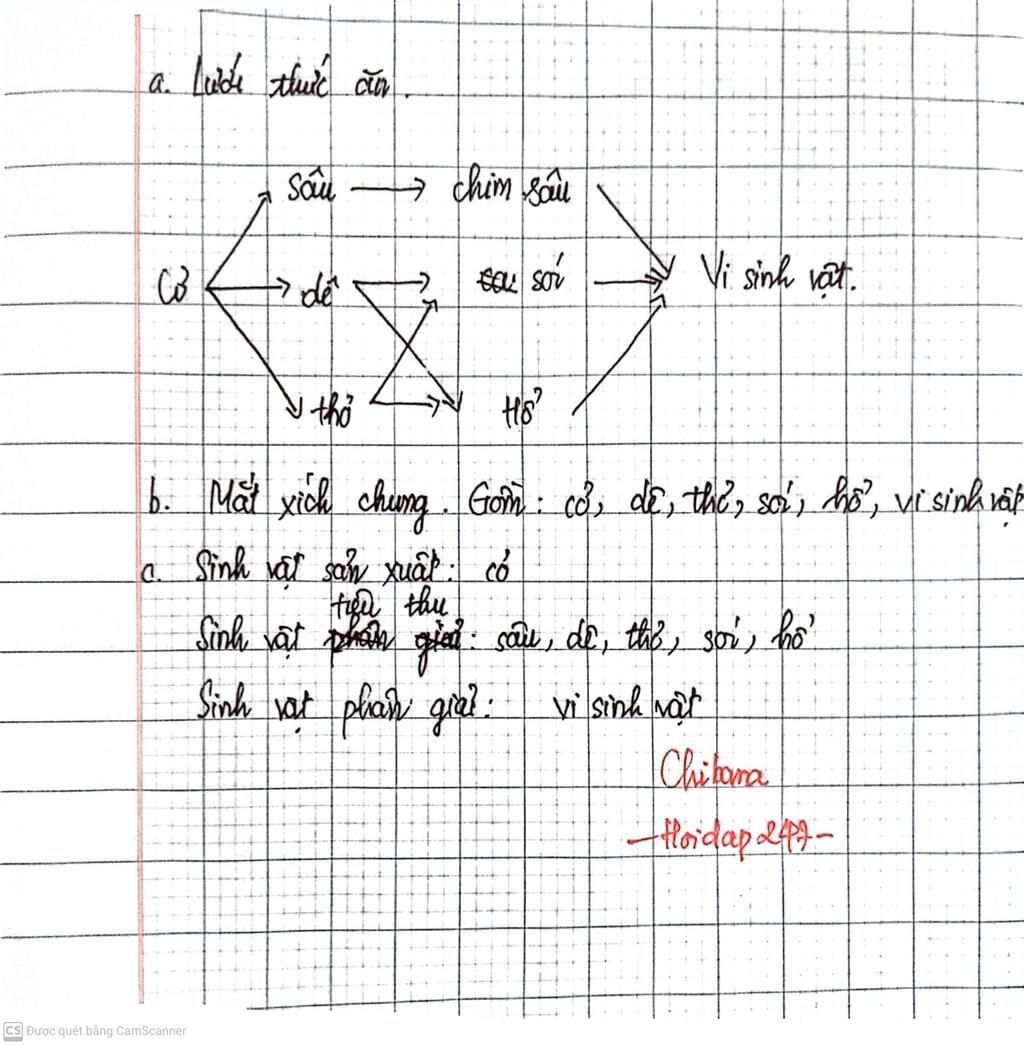 a. Lưới thức ăn.
Sâu → chim sâu
Cỏ → dê → sói → Vi sinh vật.
thỏ → Hổ
b. Mắt xích chung. Gồm: cỏ, dê, thỏ, sói, hổ, vi sinh vật
c. Sinh vật sản xuất: cỏ
tiêu thụ
Sinh vật phân giải: sâu, dê, thỏ, sói, hổ
Sinh vật phân giải: vi sinh vật
Chibana
-Hoidap247-
CS Được quét bằng CamScanner